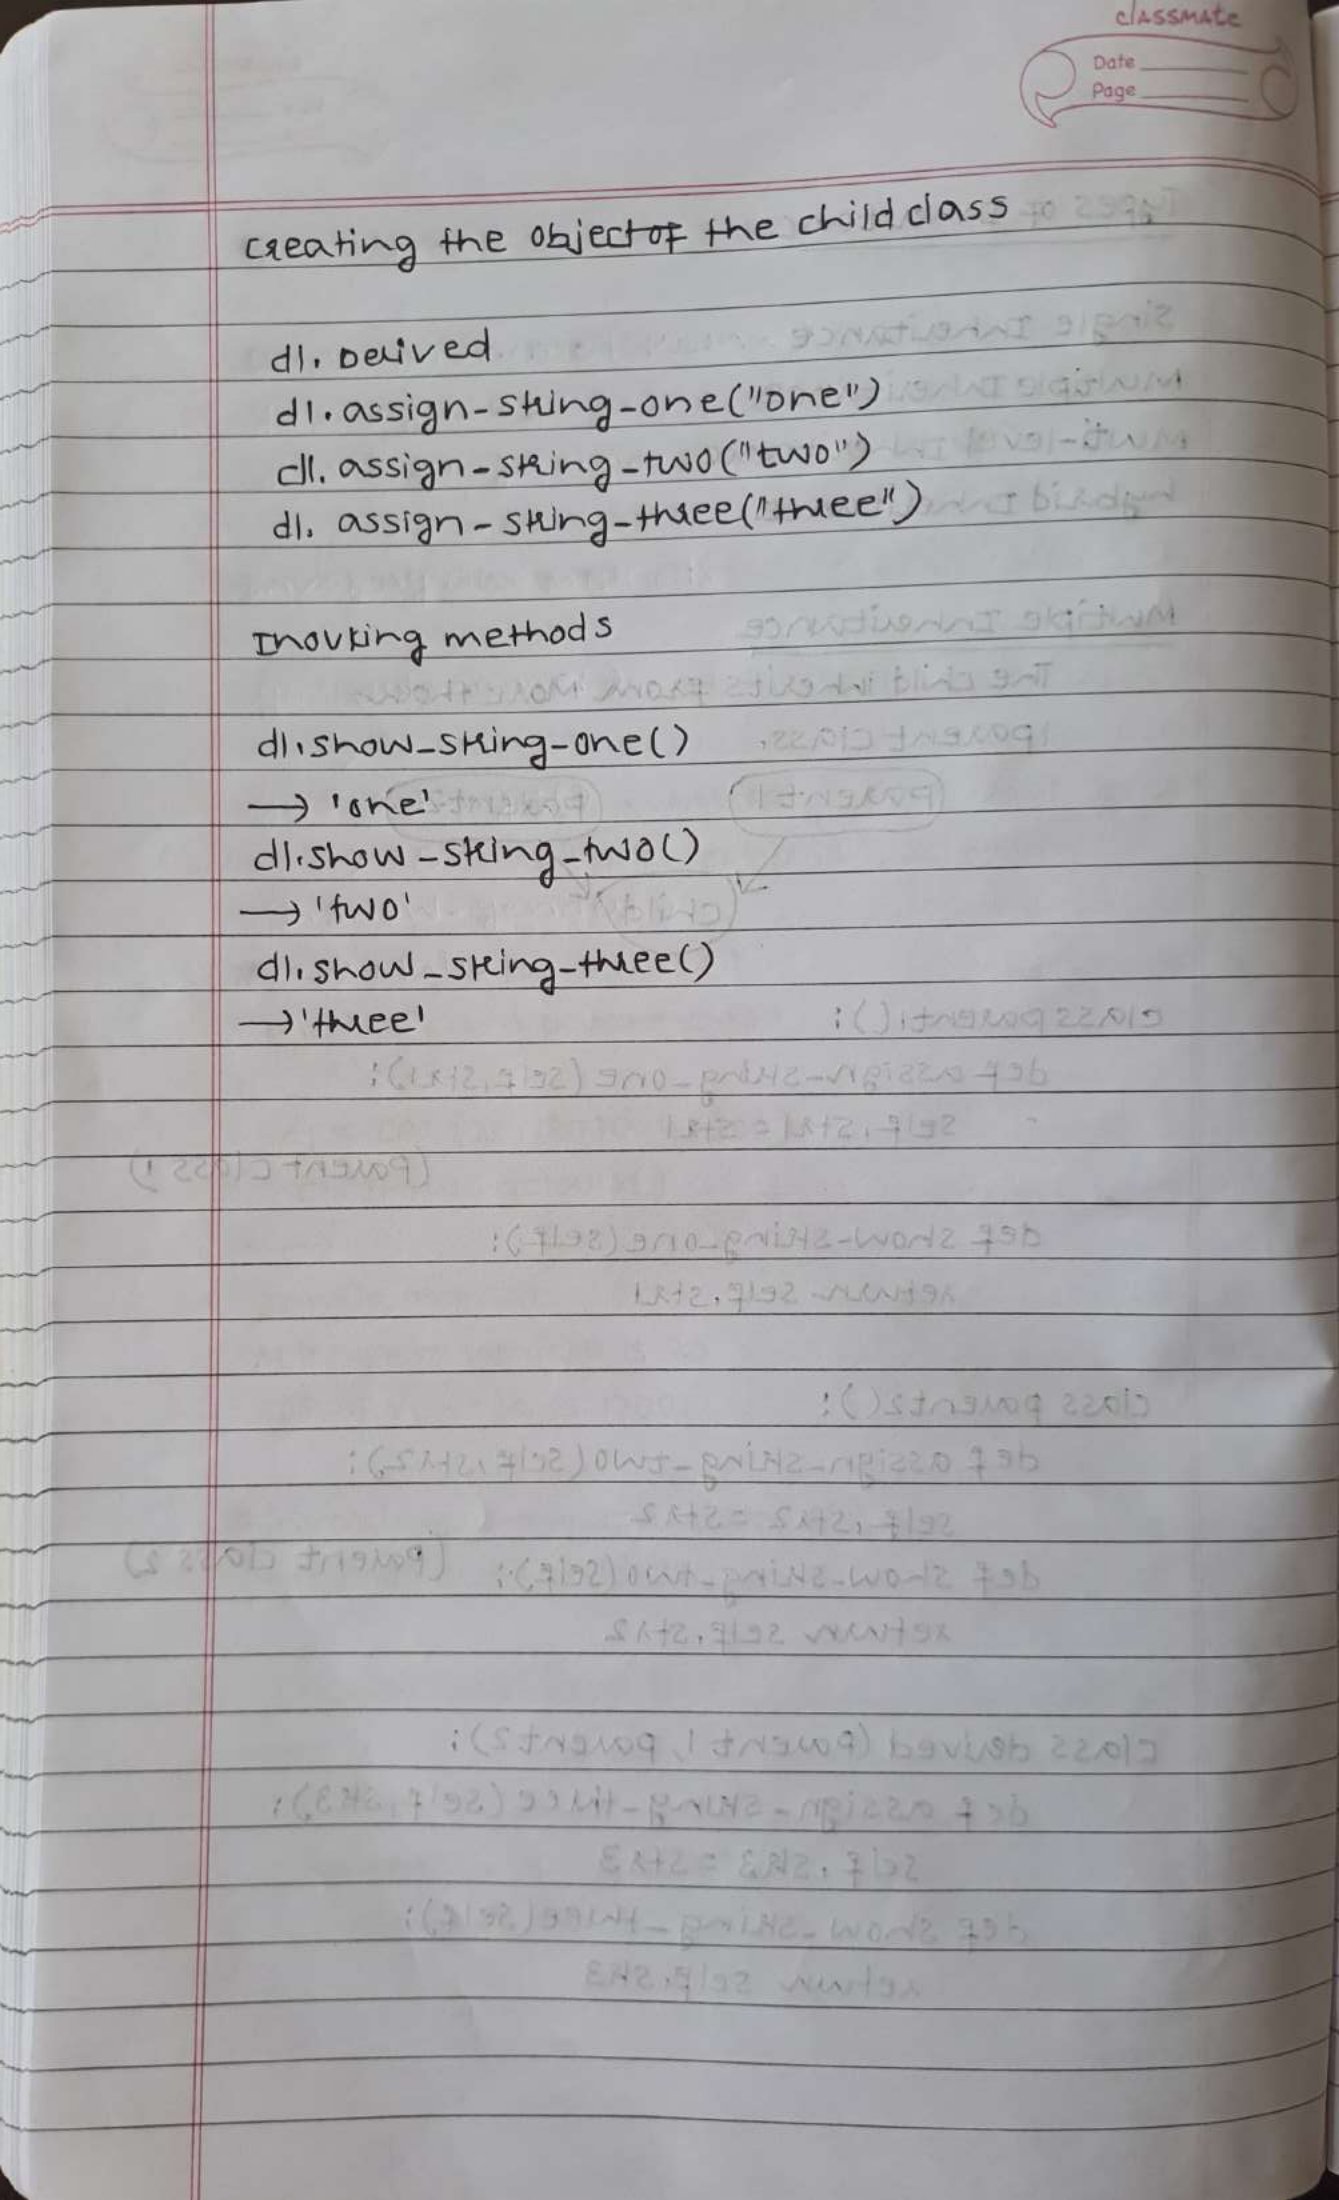 classmate
Date
Page
creating the object of the child class
d1. Derived
d1. assign-string-one("one")
d1. assign-string-two("two")
d1. assign-string-three("three")
Inovking methods
d1.show_string-one()
→ 'one'
d1.show-string-two()
→ 'two'
d1.show_string-three()
→ 'three'